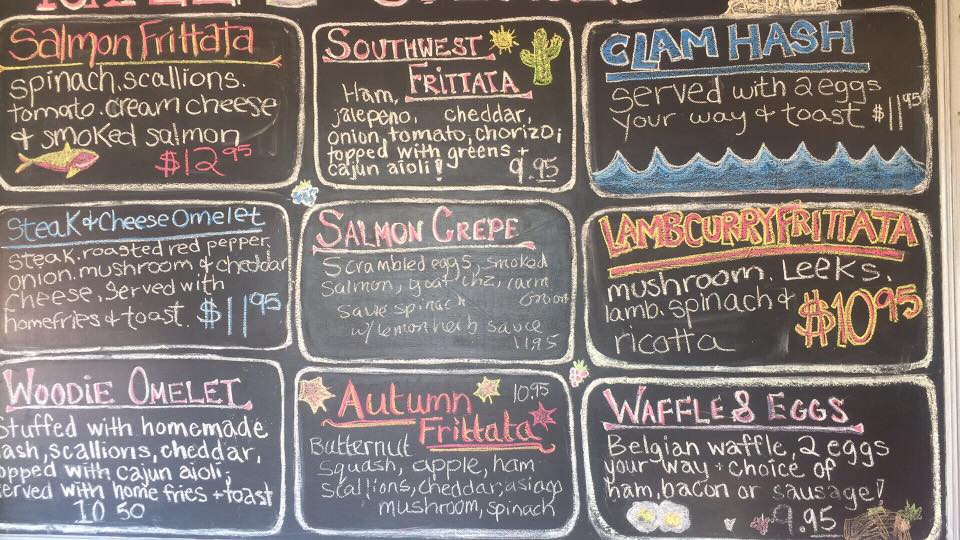 Salmon Frittata
spinach, scallions,
tomato, cream cheese
& smoked salmon
$12.95
SOUTHWEST
FRITTATA
Ham,
jalepeno, cheddar,
onion, tomato, chorizo;
topped with greens +
cajun aioli!
9.95
CLAM HASH
served with 2 eggs
your way & toast $11.95
Steak & Cheese Omelet
steak, roasted red pepper,
onion, mushroom & cheddar
cheese, served with
homefries & toast. $11.95
SALMON CREPE
Scrambled eggs, smoked
Salmon, goat chz, rarm
onion
saute spinach
w/ lemon herb sauce
11.95
LAMB CURRY FRITTATA
mushroom, Leeks,
lamb, spinach &
ricotta
$10.95
WOODIE OMELET
Stuffed with homemade
ash, scallions, cheddar,
opped with cajun aioli;
erved with home fries + toast
10 50
10.95
AUTUMN
Frittata
Butternut
squash, apple, ham
scallions, cheddar, asiago
mushroom, spinach
WAFFLE & EGGS
Belgian waffle, 2 eggs
your way + choice of
ham, bacon or sausage!
9.95